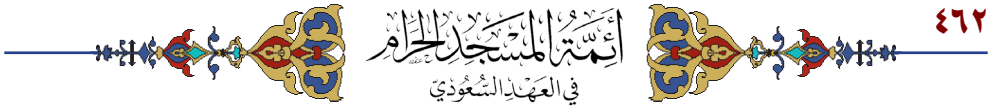 ٤٦٢
أَئِمَّةُ المَسْجِدِ الحَرَامِ
في العَهْدِ السُّعُودِيّ